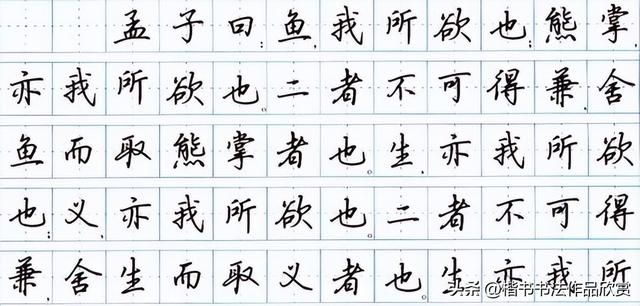 孟子曰：鱼，我所欲也；熊掌，
亦我所欲也。二者不可得兼，舍
鱼而取熊掌者也。生，亦我所欲
也；义，亦我所欲也。二者不可得
兼，舍生而取义者也。生亦我所
头条@楷书书法作品欣赏